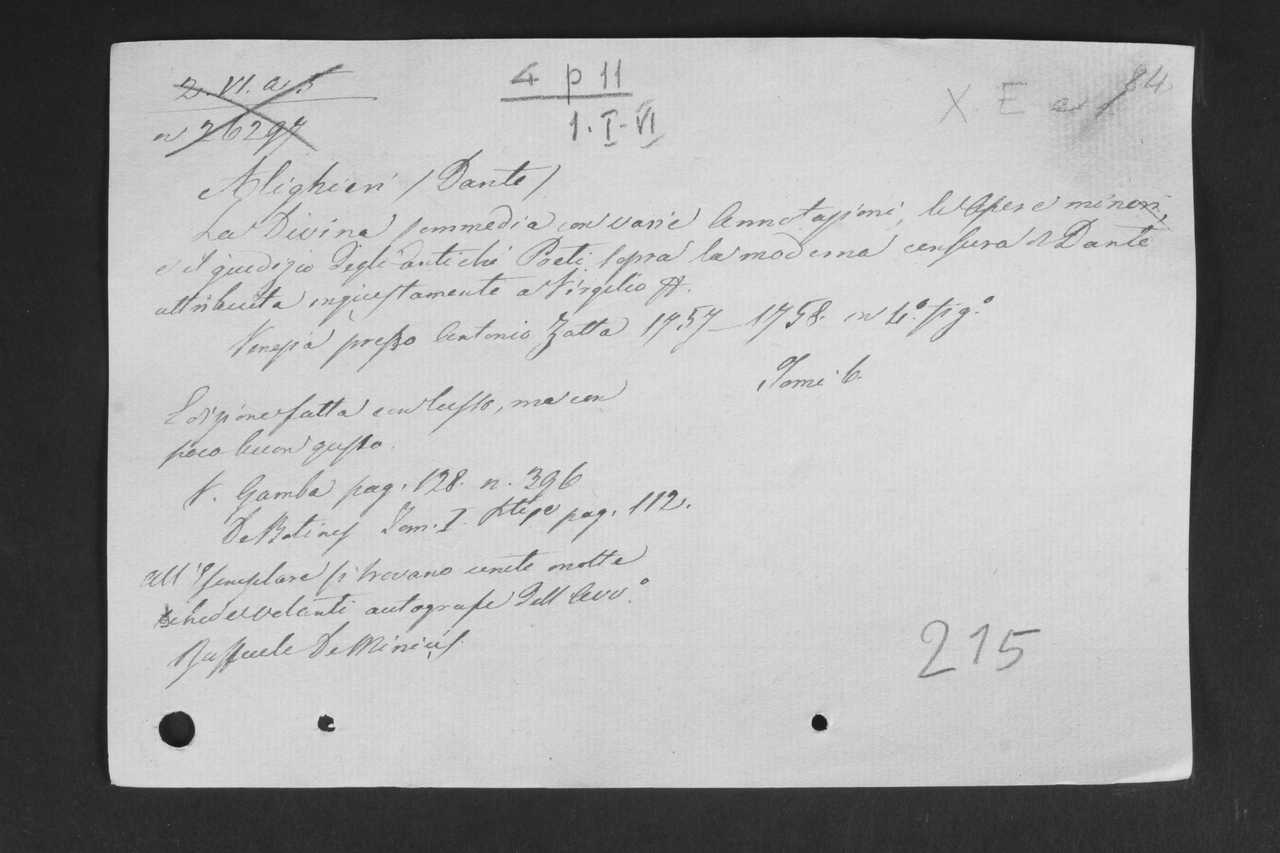 2. VI. a. 5
n 26297
4 p 11
1. I-VI
X. E 84
Alighieri (Dante)
La Divina Commedia con varie Annotazioni, le Opere minori,
e il giudizio degli antichi Poeti sopra la moderna censura di Dante
attribuita ingiustamente a Virgilio
Venezia presso Antonio Zatta 1757_1758. in 4.° fig.°
Tomi 6.
Edizione fatta con lusso, ma con
poco buon gusto.
V. Gamba pag. 128. n. 396
De Batines Tom. I. pag. 112.
All'Esemplare si trovano unite molte
schede volanti autografe dell'Avv.°
Raffaele De Minicis.
215